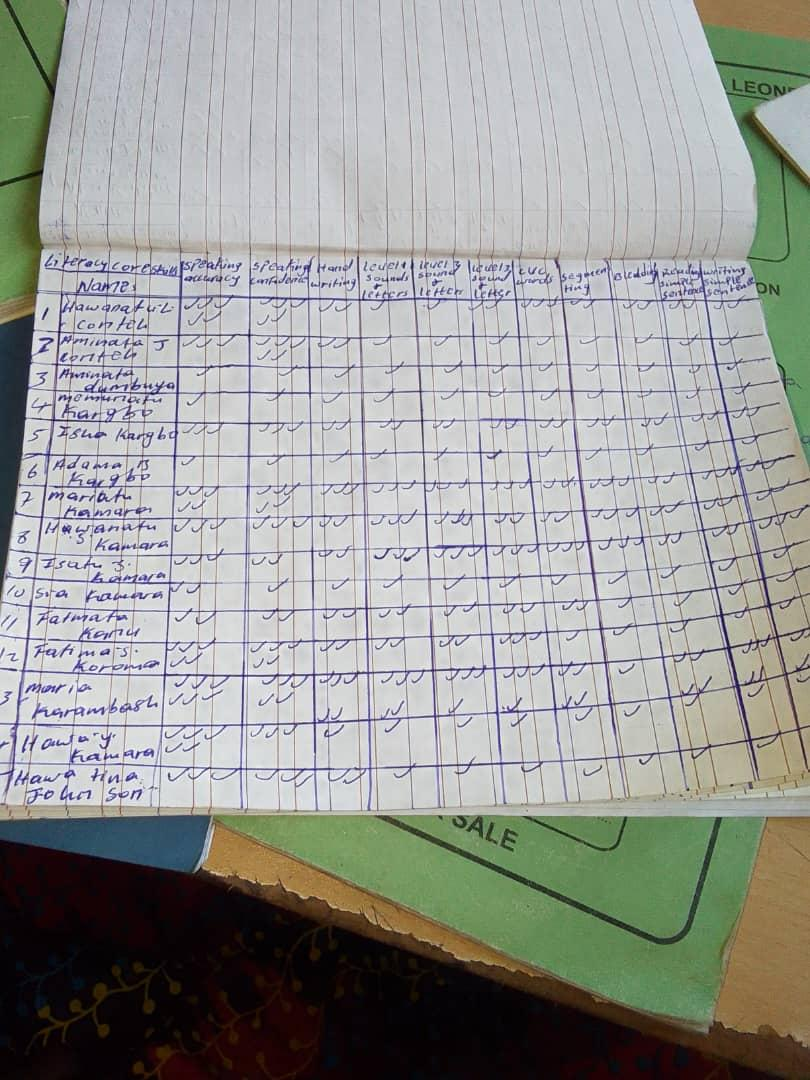 Literacy core skills
Name
speaking
accuracy
speaking
confidence
Hand
writing
level 1
sounds
&
letters
sound
&
letters
level 3
sound
&
letter
CVC
words
segmen
ting
Reading
simple
sentence
writing
simple
sentence
1 Hawanatu
conteh
2 Aminata J
conteh
3 Aminata
dumbuya
4 memunatu
Kargbo
5 Isha Kargbo
6 Adama B
Kargbo
7 mariatu
Kamara
8 Hawanatu
S Kamara
9 Isatu S.
Kamara
10 Sia Kamara
11 Fatmata
Kanu
12 Fatima S.
Koroma
3 maria
Karambash
Hawa Y.
Kamara
Hawa tina
John Son
LEONE
ON
SALE